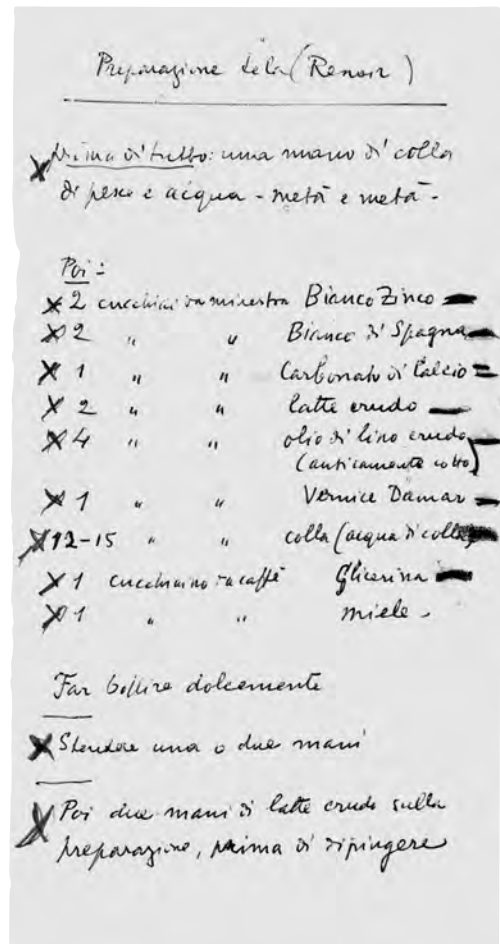 Preparazione tela (Renoir)
prima di tutto: una mano di colla
di pesce e acqua - metà e metà -
Poi:
2 cucchiai da minestra Bianco Zinco
2 " " Bianco di Spagna
1 " " Carbonato di Calcio
2 " " latte crudo
4 " " olio di lino crudo
(anticamente cotto)
1 " " Vernice Damar
12-15 " " colla (acqua di colla)
1 cucchiaino da caffè Glicerina
1 " " miele -
Far bollire dolcemente
Stendere una o due mani
Poi due mani di latte crudo sulla
preparazione, prima di dipingere